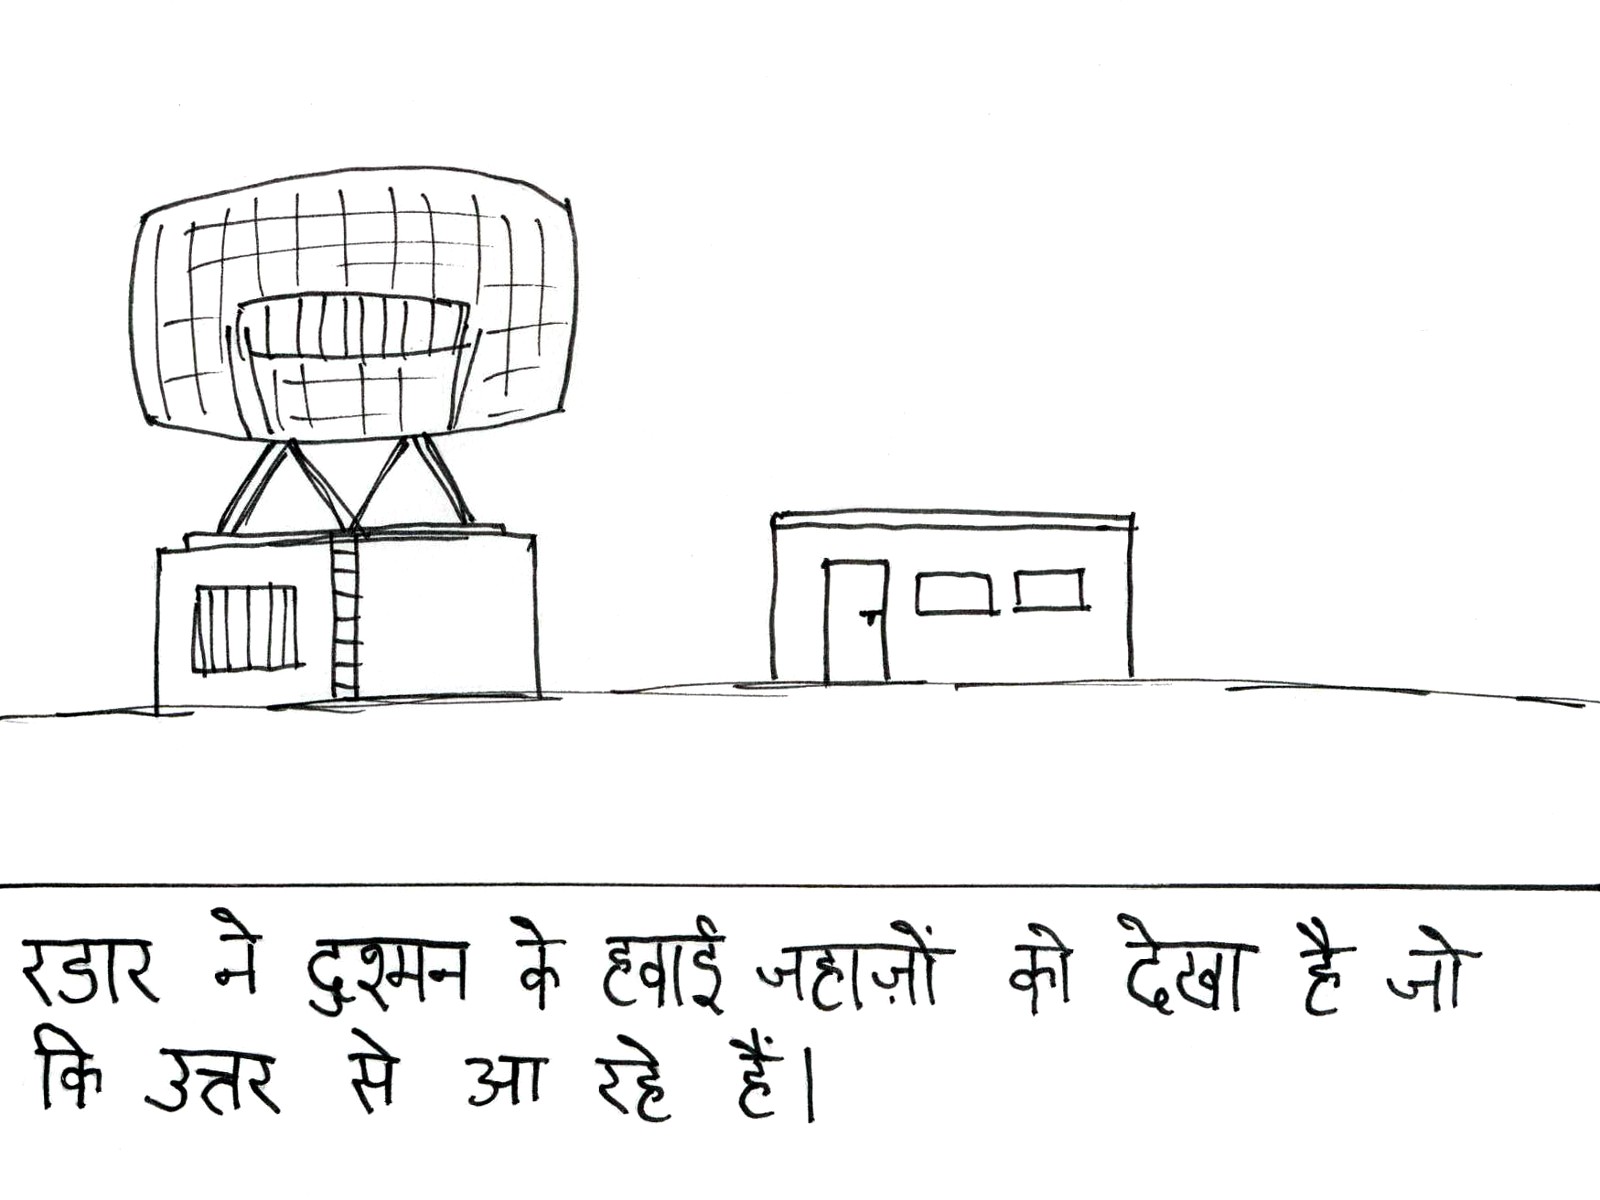 रडार ने दुश्मन के हवाई जहाज़ों को देखा है जो
कि उत्तर से आ रहे हैं।